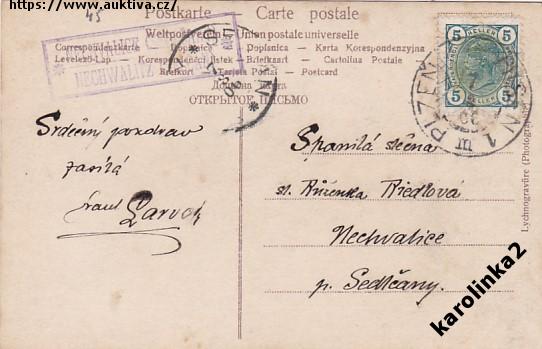 https://www.auktiva.cz/
45
Postkarte Carte postale
Weltpostverein Union postale universelle
Correspondenzkarte Dopisnica Dopisnice - Karta Korespondencyjna
Levelező-Lap Korespondenční lístek Briefkaart Cartolina Postale
Brefkort Tarjeta Postal Postcard
ОТКРЫТОЕ ПИСЬМО
NECHWALITZ
5 HELLER 5
5 5
PILSEN 1
PLZEŇ
Srdečný pozdrav
zasílá
Spanilá slečna
sl. Růženka Riedlová
Nechvalice
p. Sedlčany.
Lychnogravüre (Photographie
karolinka2